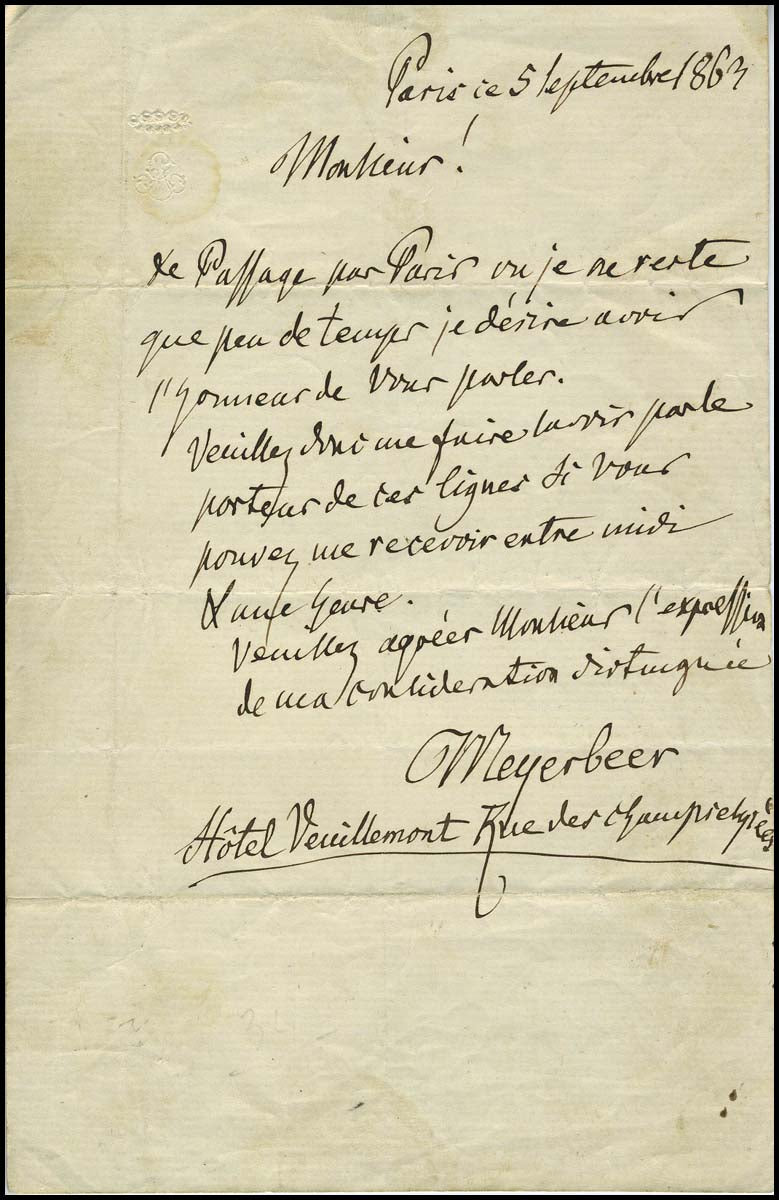 Paris ce 5 Septembre 1863
Monsieur!
de Passage par Paris ou je ne reste
que peu de temps je désire avoir
l'honneur de Vous parler.
Veuillez donc me faire savoir par le
porteur de ces lignes si vous
pouvez me recevoir entre midi
& une heure.
Veuillez agréer Monsieur l'expression
de ma consideration distinguée
Meyerbeer
Hôtel Veuillemont Rue des champs elysées